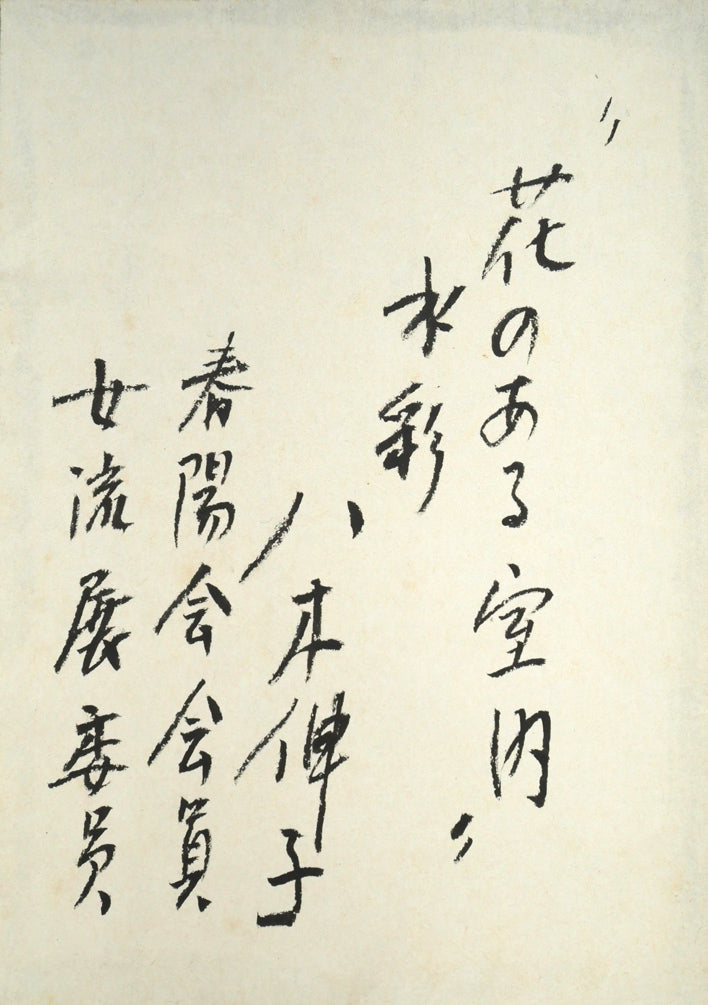 〃花のある室内〃
水彩
八木伸子
春陽会会員
女流展委員